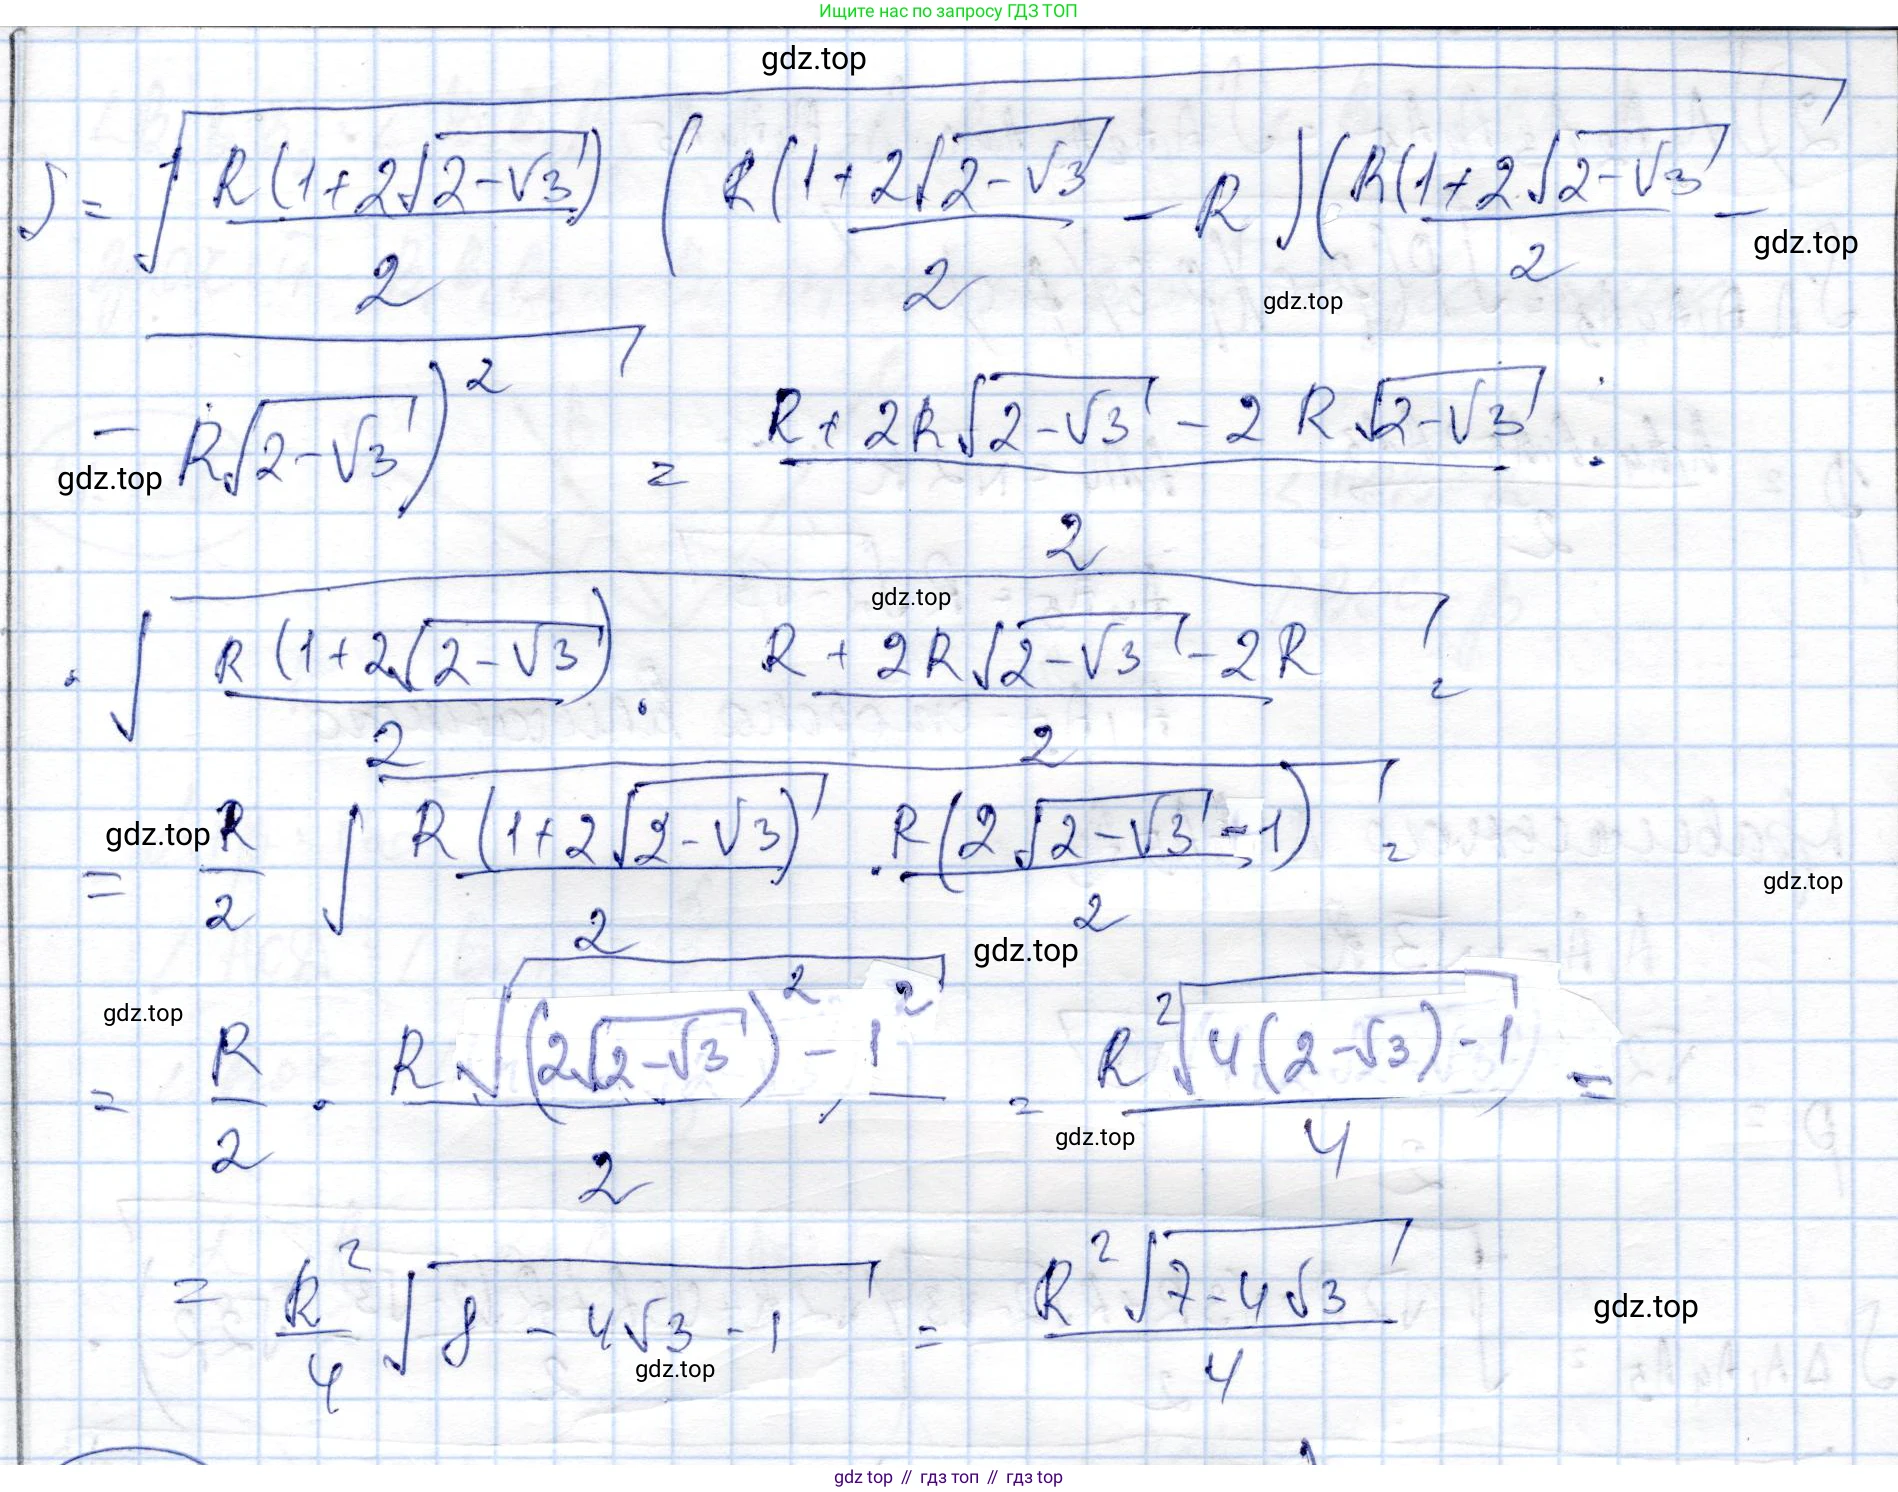 Ищите нас по запросу ГДЗ ТОП
gdz.top
S = √( R(1+2√(2-√3))/2 ( R(1+2√(2-√3)/2 - R)( R(1+2√(2-√3)/2 -
gdz.top
gdz.top
- R√(2-√3))² ) = (R+2R√(2-√3) - 2R√(2-√3))/2 ·
gdz.top
gdz.top
· √( R(1+2√(2-√3))/2 · (R+2R√(2-√3) - 2R)/2 ) =
= R/2 √( R(1+2√(2-√3))/2 · R(2√(2-√3) - 1)/2 ) =
gdz.top
gdz.top
gdz.top
gdz.top
= R/2 · R√((2√(2-√3))² - 1²)/2 = R²√(4(2-√3)-1)/4 =
gdz.top
= R²/4 √(8 - 4√3 - 1) = R²√(7-4√3)/4
gdz.top
gdz.top
gdz top // гдз топ // гдз top